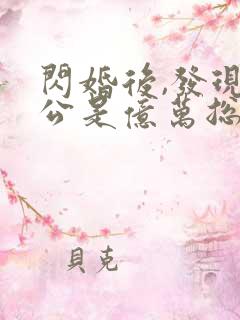 閃婚後,發現
公是億萬總
貝克